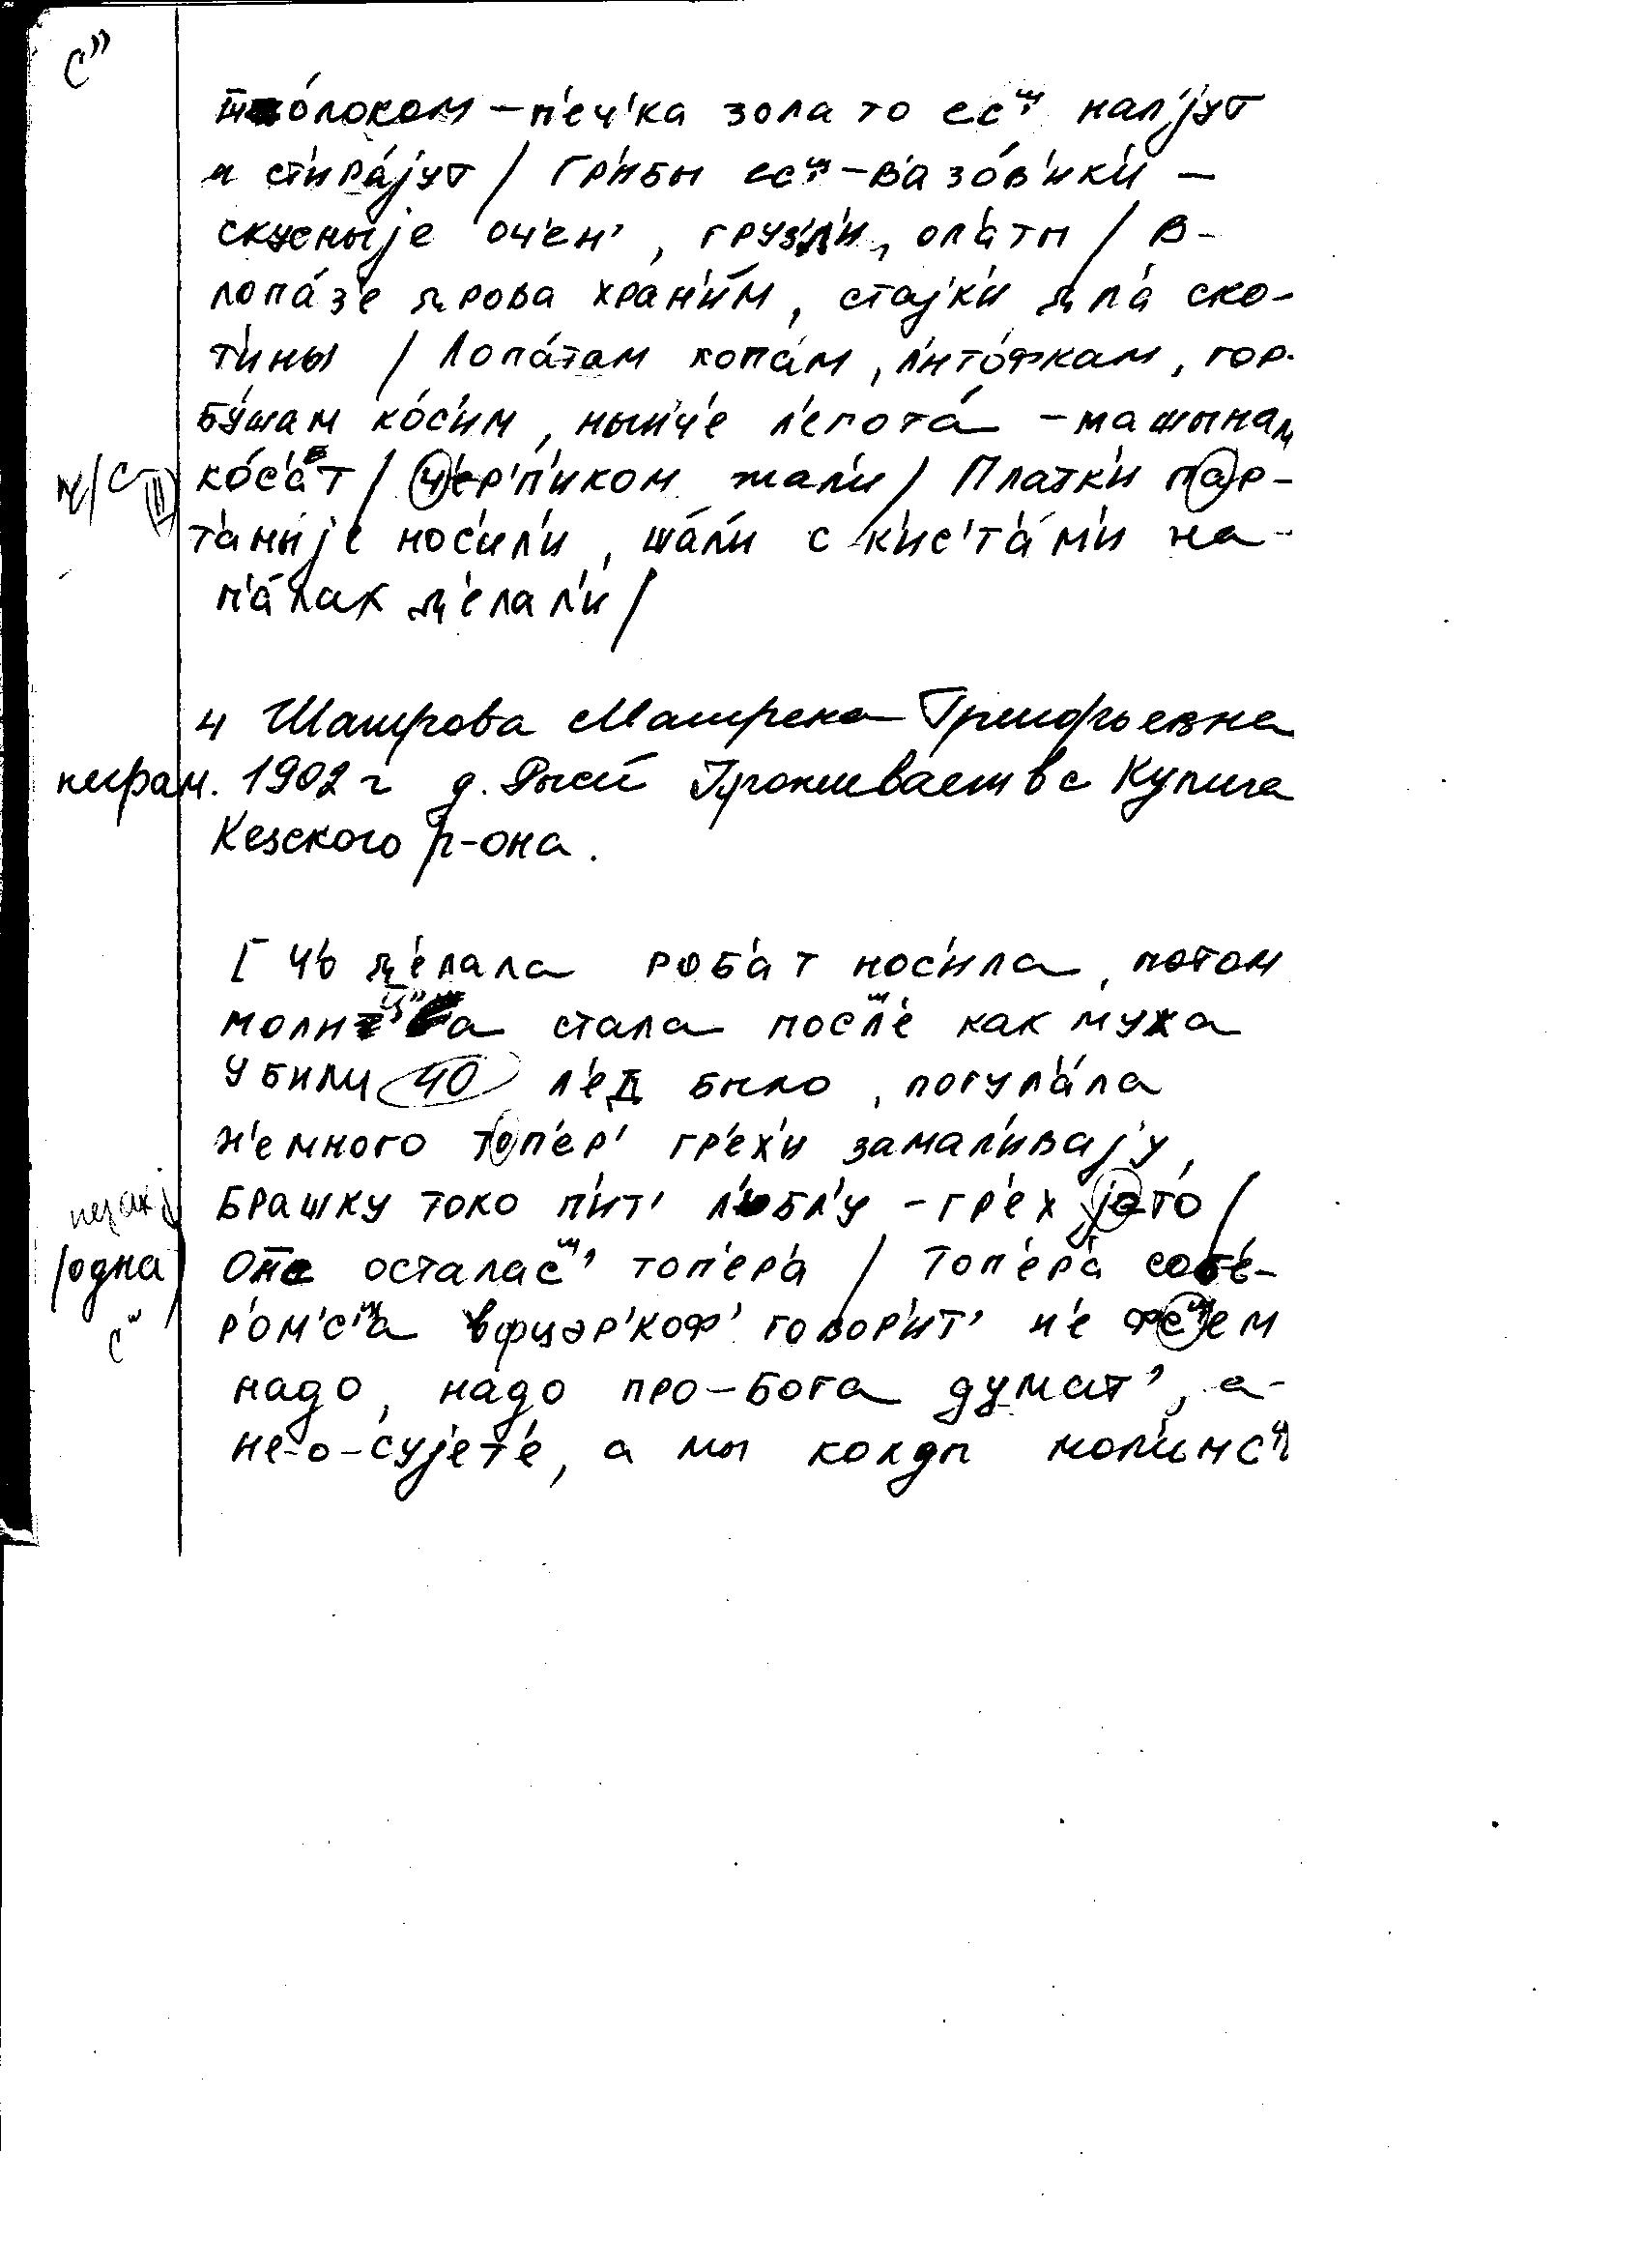 с"
щёлоком – п'еч'ка зола то ес'ᵐ нал'jут
и ст'ира́jут / Гр'ибы ес'ᵐ – в'азо́в'ик'и –
скусныjе оч'ен', груз'д'и, оп'аты / В-
лопа́з'е дрова хран'и́м, стаjк'и дл'а ско-
т'ины / Лопа́там копа́м, л'ито́фкам, гор-
бу́шам ко́с'им, нын'ч'е л'егота́ – машынам
ко́с'ат / ч'ер'п'иком жал'и / Платк'и пар-
таныjе нос'ил'и, ша́л'и с к'ис'т'а́м'и на-
п'а́лах д'елал'и /
4 Шатрова Матрена Григорьевна
неграм. 1902 г д. Рыси Проживает в с Кулига
Кезского р-она.
[ Ч'о д'елала роб'ат нос'ила, потом
стала посл'е как мужа
убили 40 л'ед было, погул'а́ла
н'емного топ'ер' гр'ех'и замал'иваjу,
брашку токо п'ит' л'убл'у – гр'ех jето /
/одна/ осталас'ᵐ' топ'ер'а / Топ'ер'а соб'е-
р'ом'с'а вфцэр'коф' говор'ит' н'е
надо, надо про-бога думат', а-
не-о-суjет'е, а мы колды мол'имс'